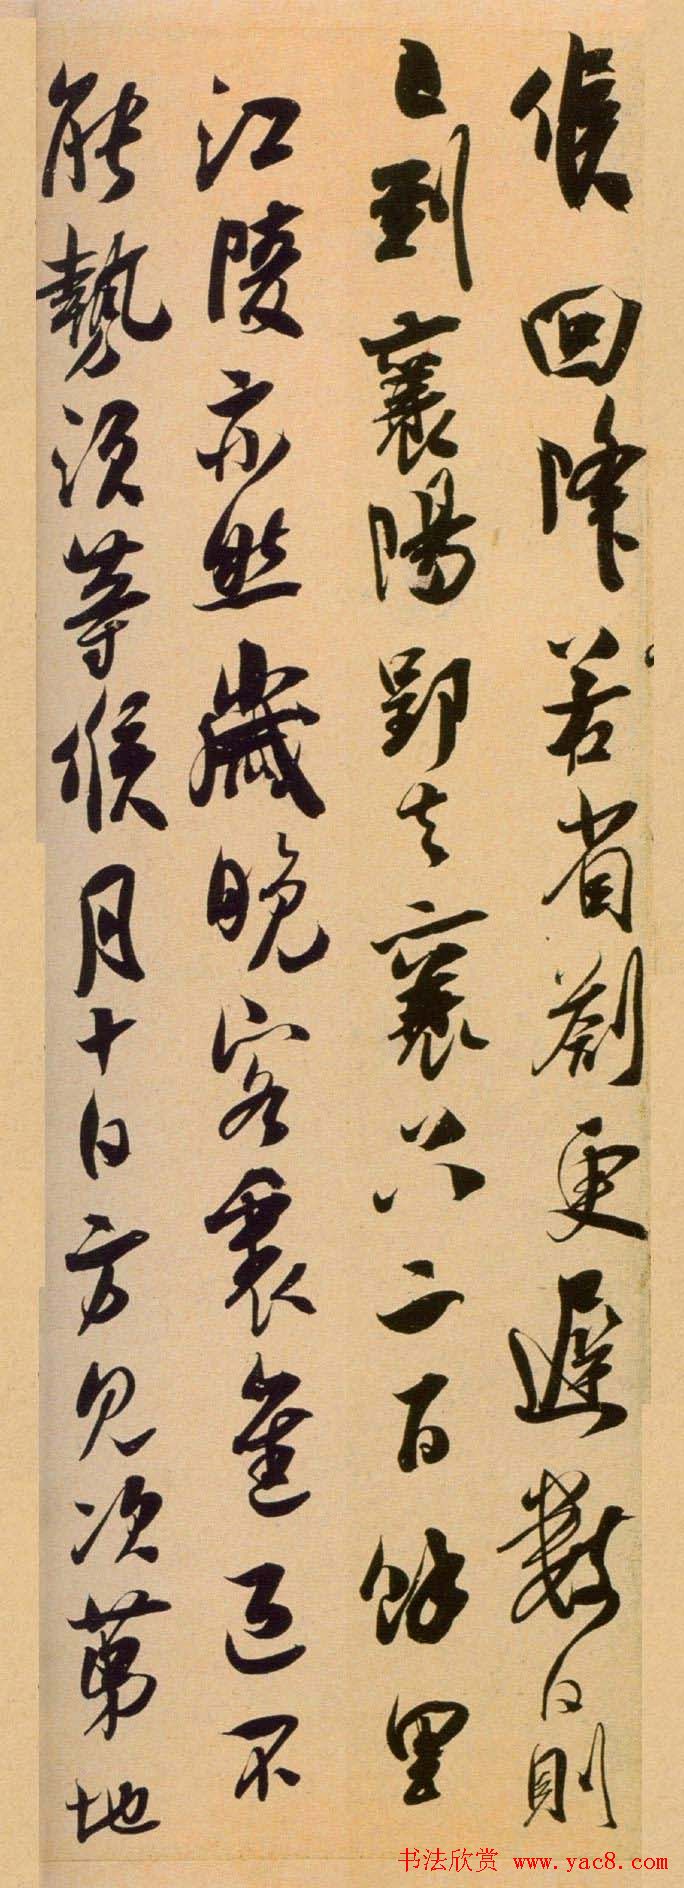 候回降若省劄更遲數日則
已到襄陽郢去襄只二百餘里
江陵亦然歲晚客裏進退不
能勢須等候月十日方見次第地
书法欣赏 www.yac8.com